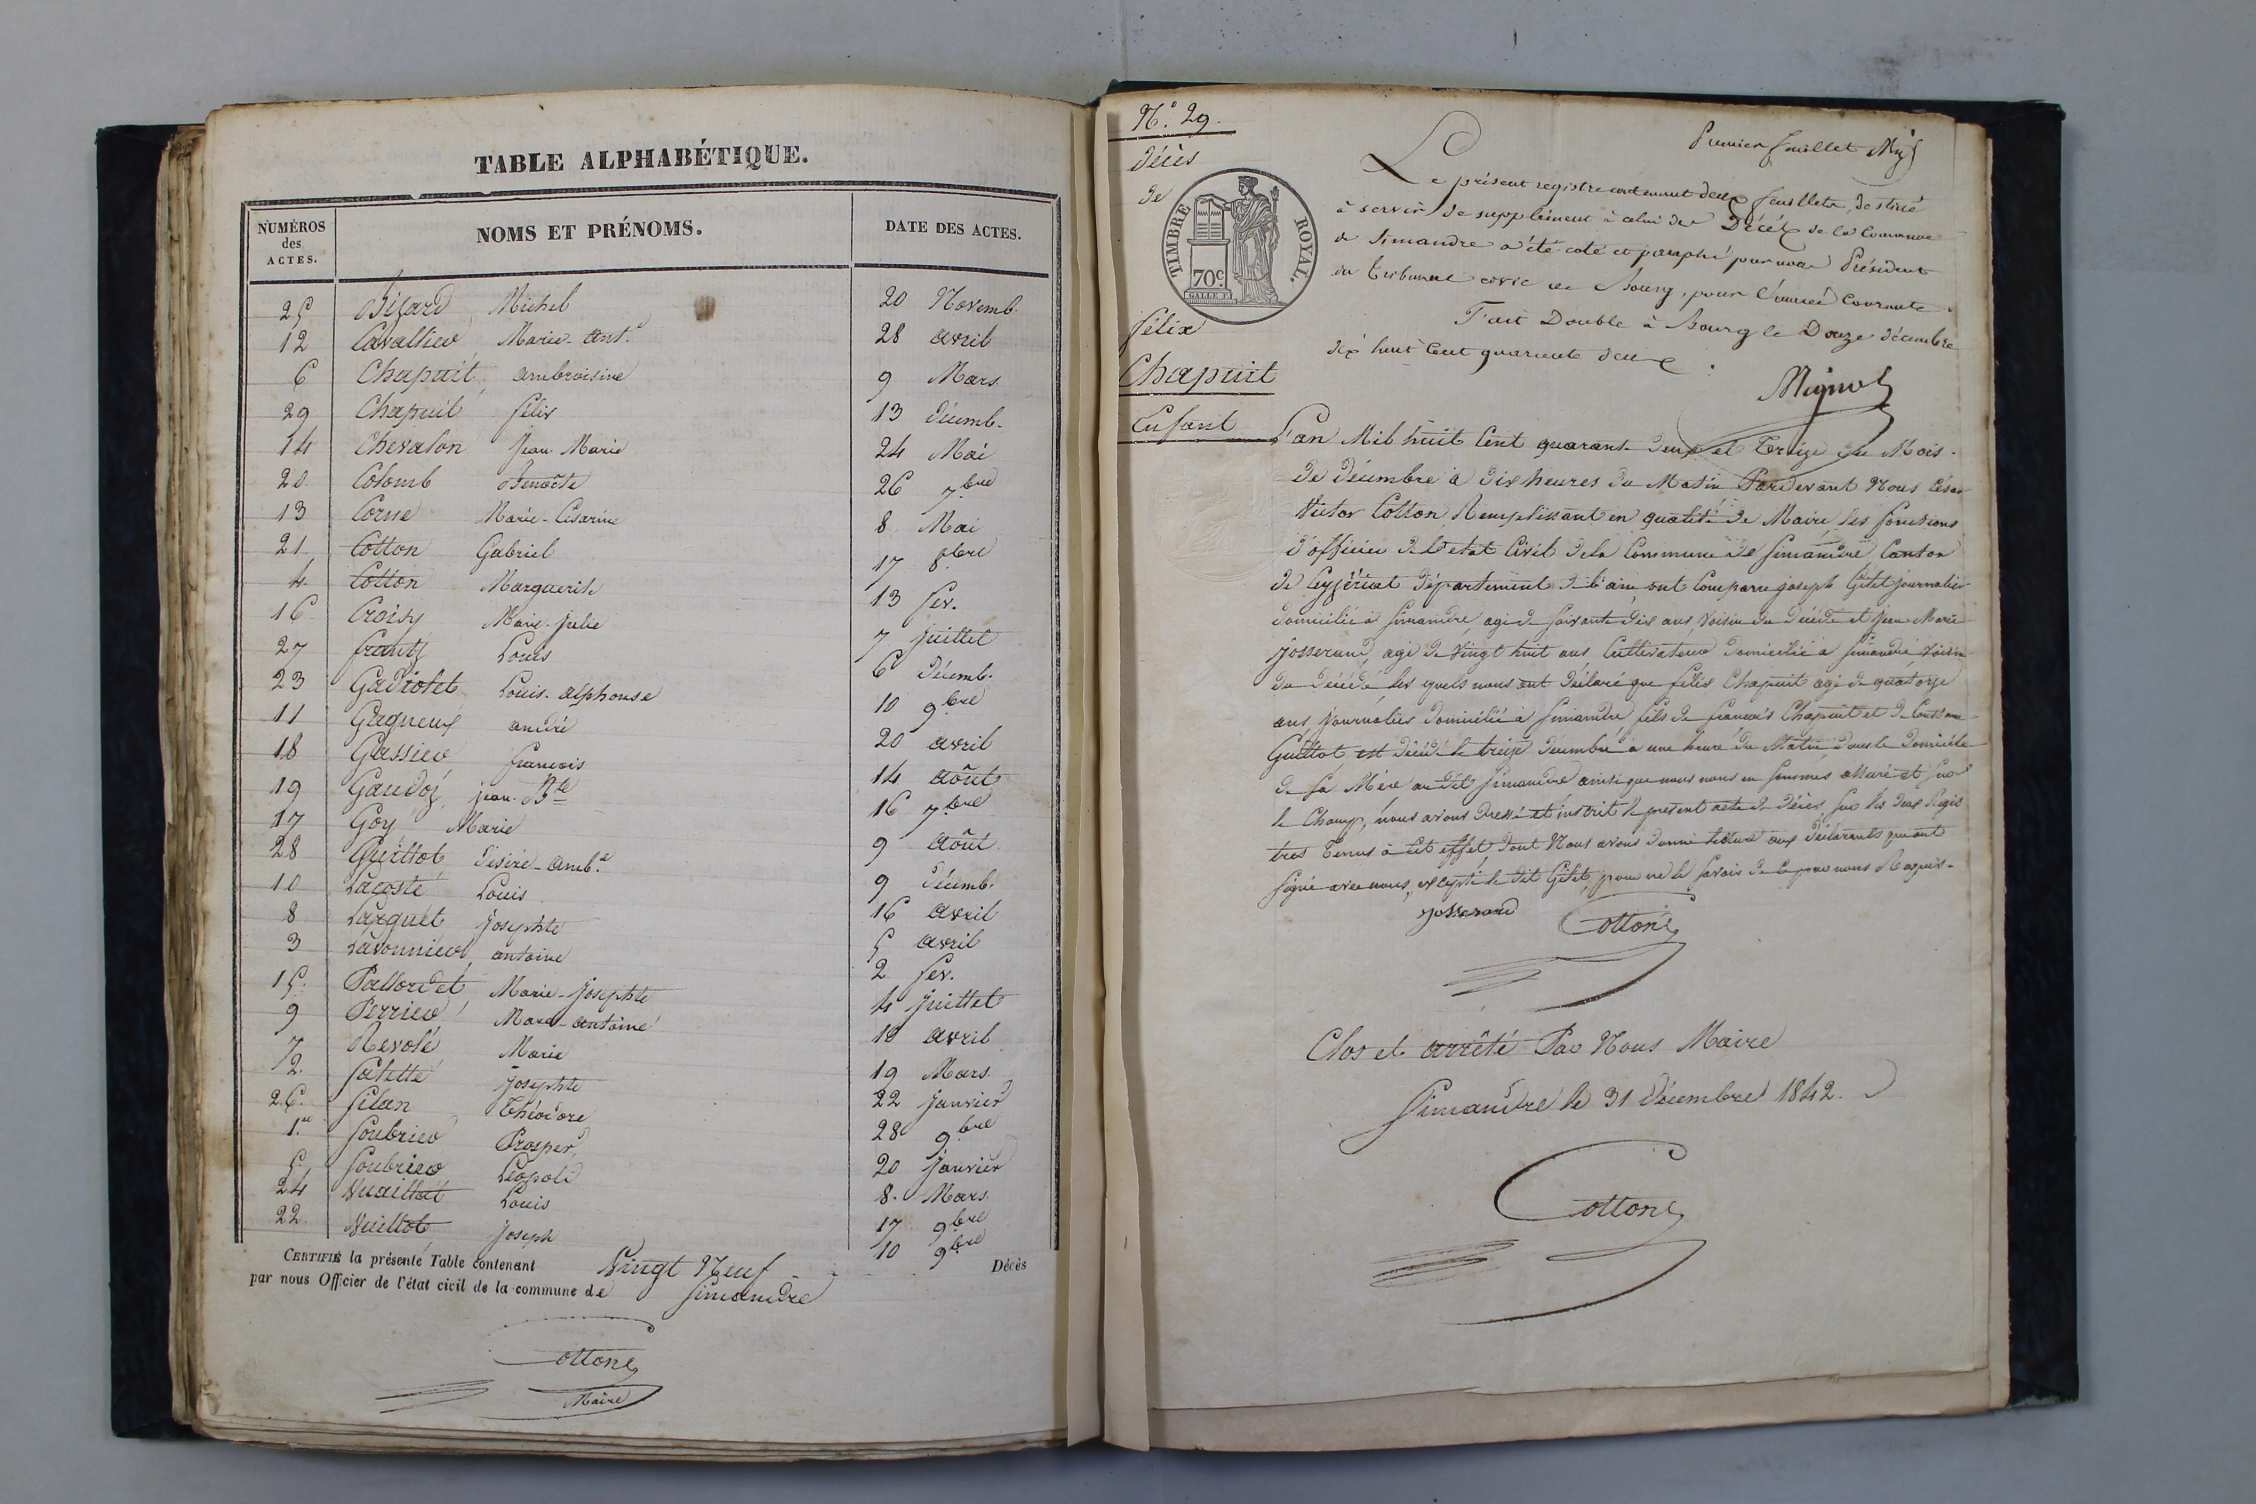 TABLE ALPHABÉTIQUE.
NUMÉROS des ACTES. NOMS ET PRÉNOMS. DATE DES ACTES.
25 Bizard Michel 20 Novemb.
12 Cavallier Marie-Ant. 28 avril
6 Chapuit ambroisine 9 Mars
29 Chapuit félix 13 décemb.
14 Chevalon Jean Marie 24 Mai
20 Colomb Benoîte 26 7bre
13 Corne Marie-Césarine 8 Mai
21 Cotton Gabriel 17 8bre
4 Cotton Marguerite 13 fev.
16 Croisy Marie-Julie 7 Juillet
27 frantz Louis 6 décemb.
23 Gadiolet Louis-alphonse 10 9bre
11 Gagneux andré 20 avril
18 Gassier françois 14 août
19 Gaudoz jean Bte 16 7bre
17 Goy Marie 9 août
28 Guillot désiré-amb.e 9 décemb.
10 Lacoste Louis 16 avril
8 Larguet Josephte 5 avril
3 Lavonnier antoine 2 fev.
15 Pallordet Marie-Josephte 4 juillet
9 Perrier Marie-antoine 10 avril
7 Revolé Marie 19 Mars
2 Salette Josephte 22 janvier
26 Silan Théodore 28 9bre
1er Soubrier Prosper 20 janvier
5 Soubrier Léopold 8 Mars
24 Vuaillat Louis 17 9bre
22 Vuillot Joseph 10 9bre
CERTIFIÉ la présente Table contenant Vingt Neuf Décès
par nous Officier de l'état civil de la commune de Simandre
Cotton
Maire
N.° 29.
Décès
de
TIMBRE ROYAL.
70c
félix
Chapuit
Enfant
Premier feuillet
Le présent registre contenant deux feuillets, destiné
à servir de supplément à celui des Décès de la Commune
de Simandre a été coté et paraphé par nous Président
du tribunal civil de Bourg, pour l'année Courante.
Fait Double à Bourg le Douze décembre
dix huit cent quarante deux.
Mignot
L'an Mil huit Cent quarante deux et treize du Mois
de Décembre à dix heures du Matin Pardevant Nous César
Victor Cotton, Remplissant en qualité de Maire les fonctions
d'officier de l'état Civil de la Commune de Simandre Canton
de Ceyzériat département de l'ain, ont Comparu joseph Gilet journalier
domicilié à Simandre agé de soixante dix ans Voisin du Décédé et Jean Marie
Josserand, agé de Vingt huit ans Cultivateur Domicilié à Simandre Voisin
du Décédé, les quels nous ont Déclaré que félix Chapuit agé de quatorze
ans Journalier domicilié à Simandre fils de françois Chapuit et de
Guillot est décédé le treize décembre à une heure du Matin dans le domicile
de sa Mère au dit Simandre ainsi que nous nous en sommes assuré et sur
le Champ, nous avons dressé et inscrit le present acte de décès sur les deux Regis
tres tenus à cet effet dont Nous avons donné lecture aux déclarants qui ont
signé avec nous, excepté le dit Gilet, pour ne le savoir de ce par nous Requis.
Josserand Cotton
Clos et arrêté Par Nous Maire
Simandre le 31 décembre 1842.
Cotton